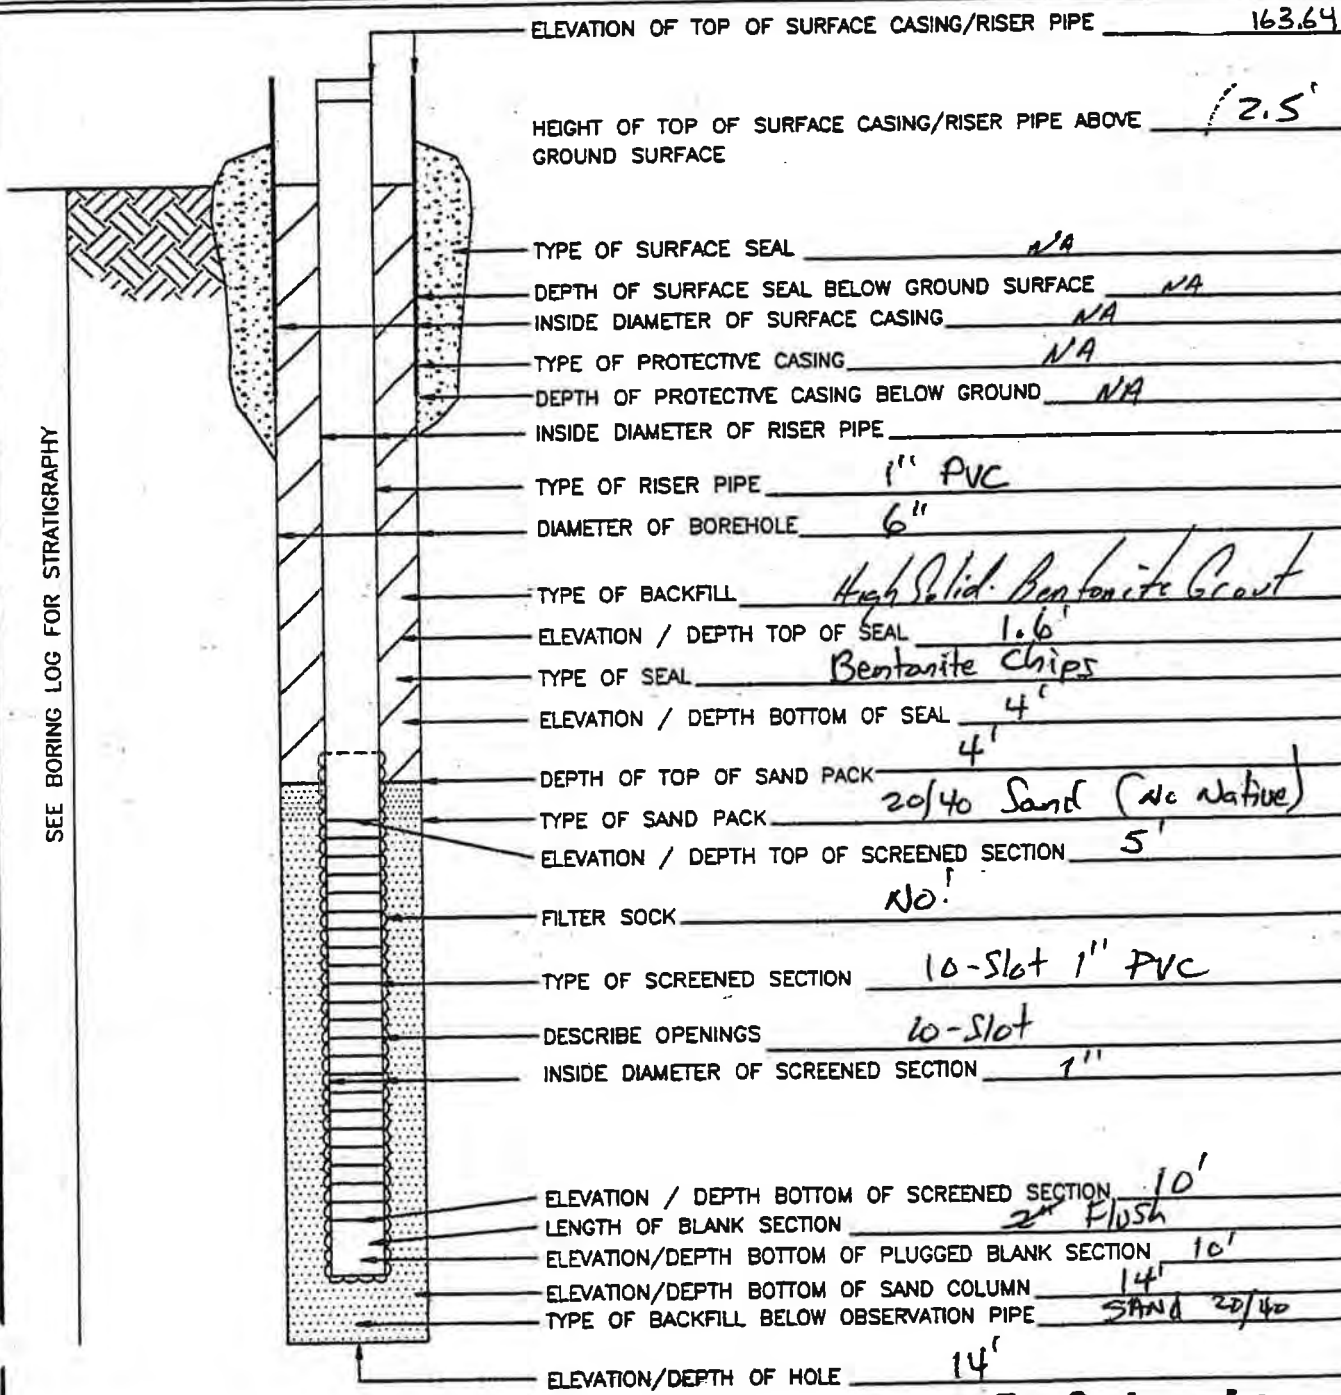 ELEVATION OF TOP OF SURFACE CASING/RISER PIPE 163.64
HEIGHT OF TOP OF SURFACE CASING/RISER PIPE ABOVE 2.5'
GROUND SURFACE
TYPE OF SURFACE SEAL NA
DEPTH OF SURFACE SEAL BELOW GROUND SURFACE NA
INSIDE DIAMETER OF SURFACE CASING NA
TYPE OF PROTECTIVE CASING NA
DEPTH OF PROTECTIVE CASING BELOW GROUND NA
INSIDE DIAMETER OF RISER PIPE
TYPE OF RISER PIPE 1" PVC
DIAMETER OF BOREHOLE 6"
SEE BORING LOG FOR STRATIGRAPHY
TYPE OF BACKFILL High Solid Bentonite Grout
ELEVATION / DEPTH TOP OF SEAL 1.6'
TYPE OF SEAL Bentonite Chips
ELEVATION / DEPTH BOTTOM OF SEAL 4'
DEPTH OF TOP OF SAND PACK 4'
TYPE OF SAND PACK 20/40 Sand (No Native)
ELEVATION / DEPTH TOP OF SCREENED SECTION 5'
FILTER SOCK No!
TYPE OF SCREENED SECTION 10-Slot 1" PVC
DESCRIBE OPENINGS 10-Slot
INSIDE DIAMETER OF SCREENED SECTION 1"
ELEVATION / DEPTH BOTTOM OF SCREENED SECTION 10'
LENGTH OF BLANK SECTION 2" Flush
ELEVATION/DEPTH BOTTOM OF PLUGGED BLANK SECTION 10'
ELEVATION/DEPTH BOTTOM OF SAND COLUMN 14'
TYPE OF BACKFILL BELOW OBSERVATION PIPE SANd 20/40
ELEVATION/DEPTH OF HOLE 14'